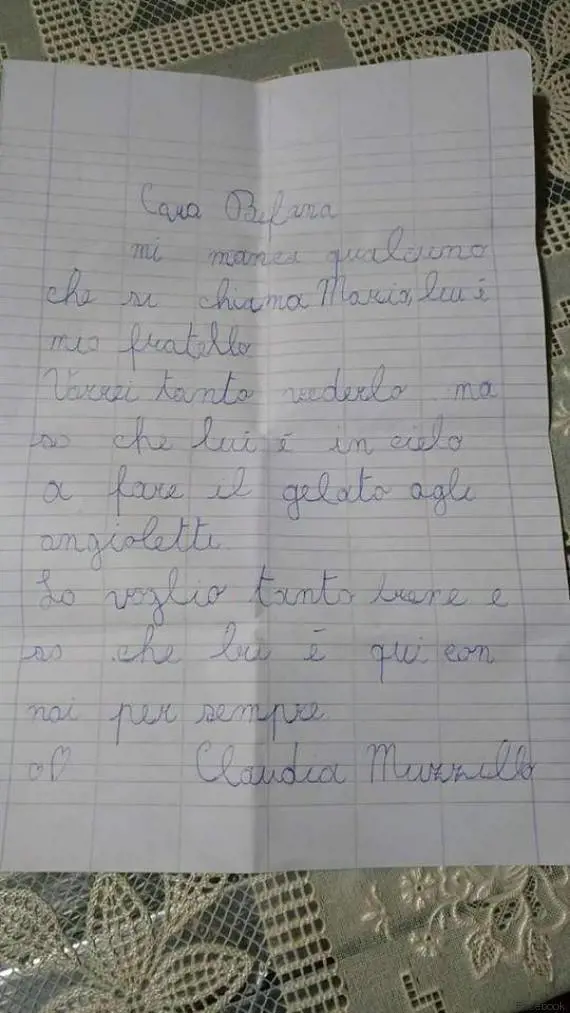 Cara Befana
mi manca qualcuno
che si chiama Mario, lui è
mio fratello
Vorrei tanto vederlo ma
so che lui è in cielo
a fare il gelato agli
angioletti.
Lo voglio tanto bene e
so che lui è qui con
noi per sempre.
Claudia Muzzillo
Facebook